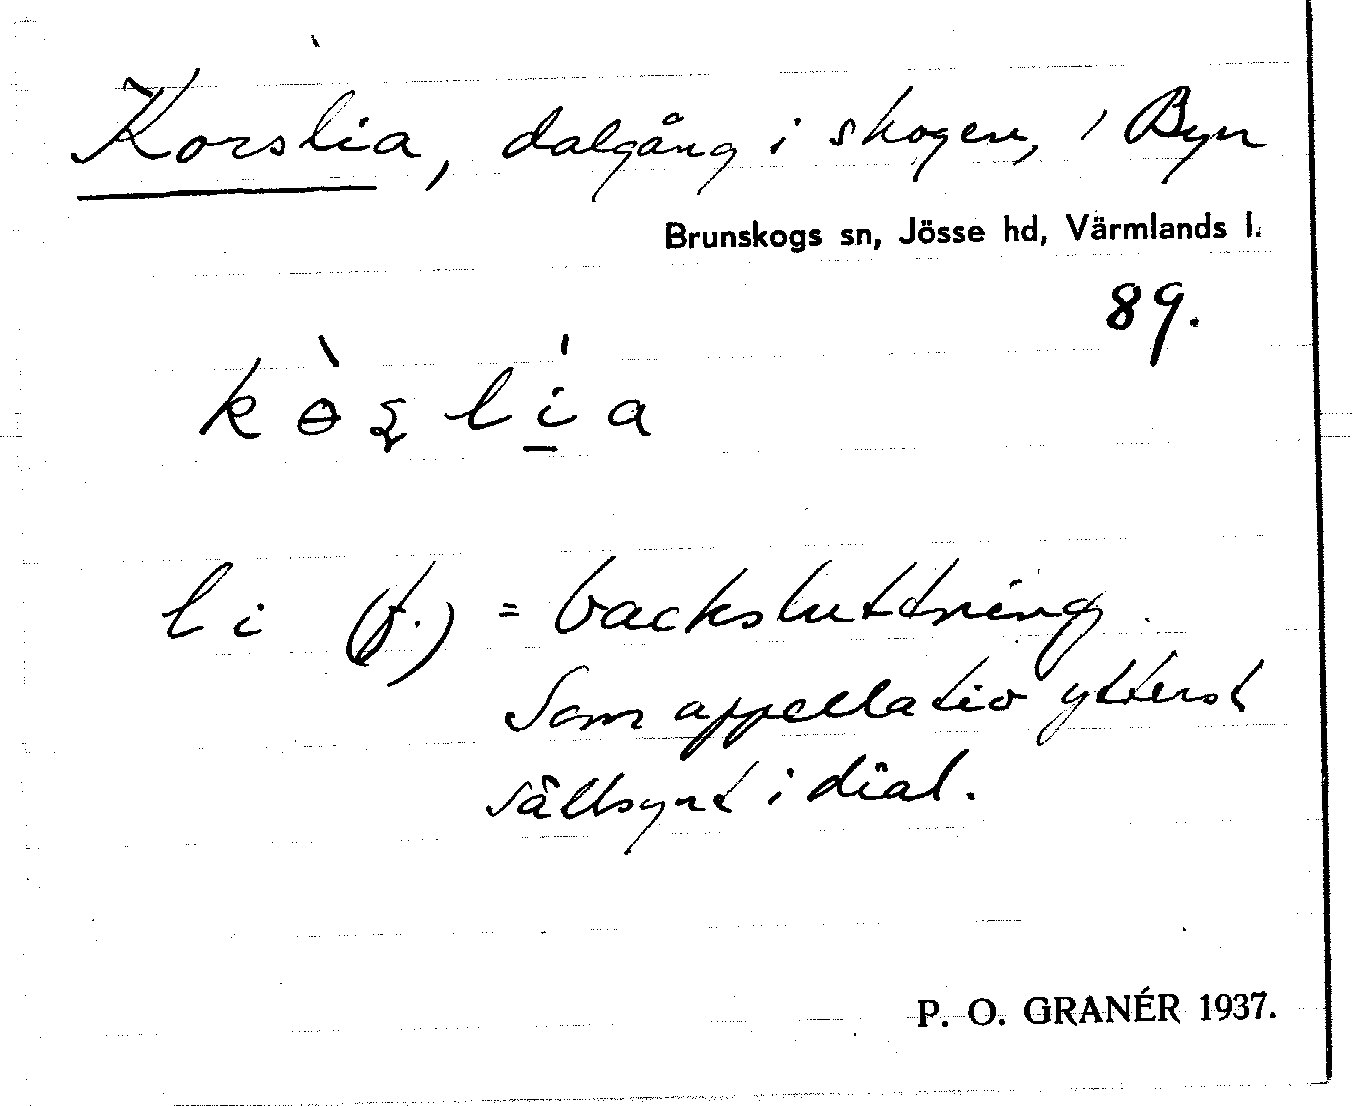 Korslia, dalgång i skogen, i Byn
Brunskogs sn, Jösse hd, Värmlands l.
89.
kɵ̀ʂlі̱́a
li (f.) = backsluttning.
Som appellativ ytterst
sällsynt i dial.
P. O. GRANÉR 1937.